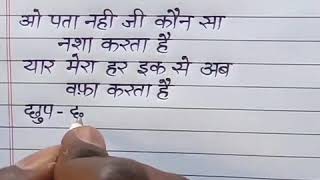 ओ पता नही जी कौन सा
नशा करता है
यार मेरा हर इक से अब
वफ़ा करता है
छुप - छ